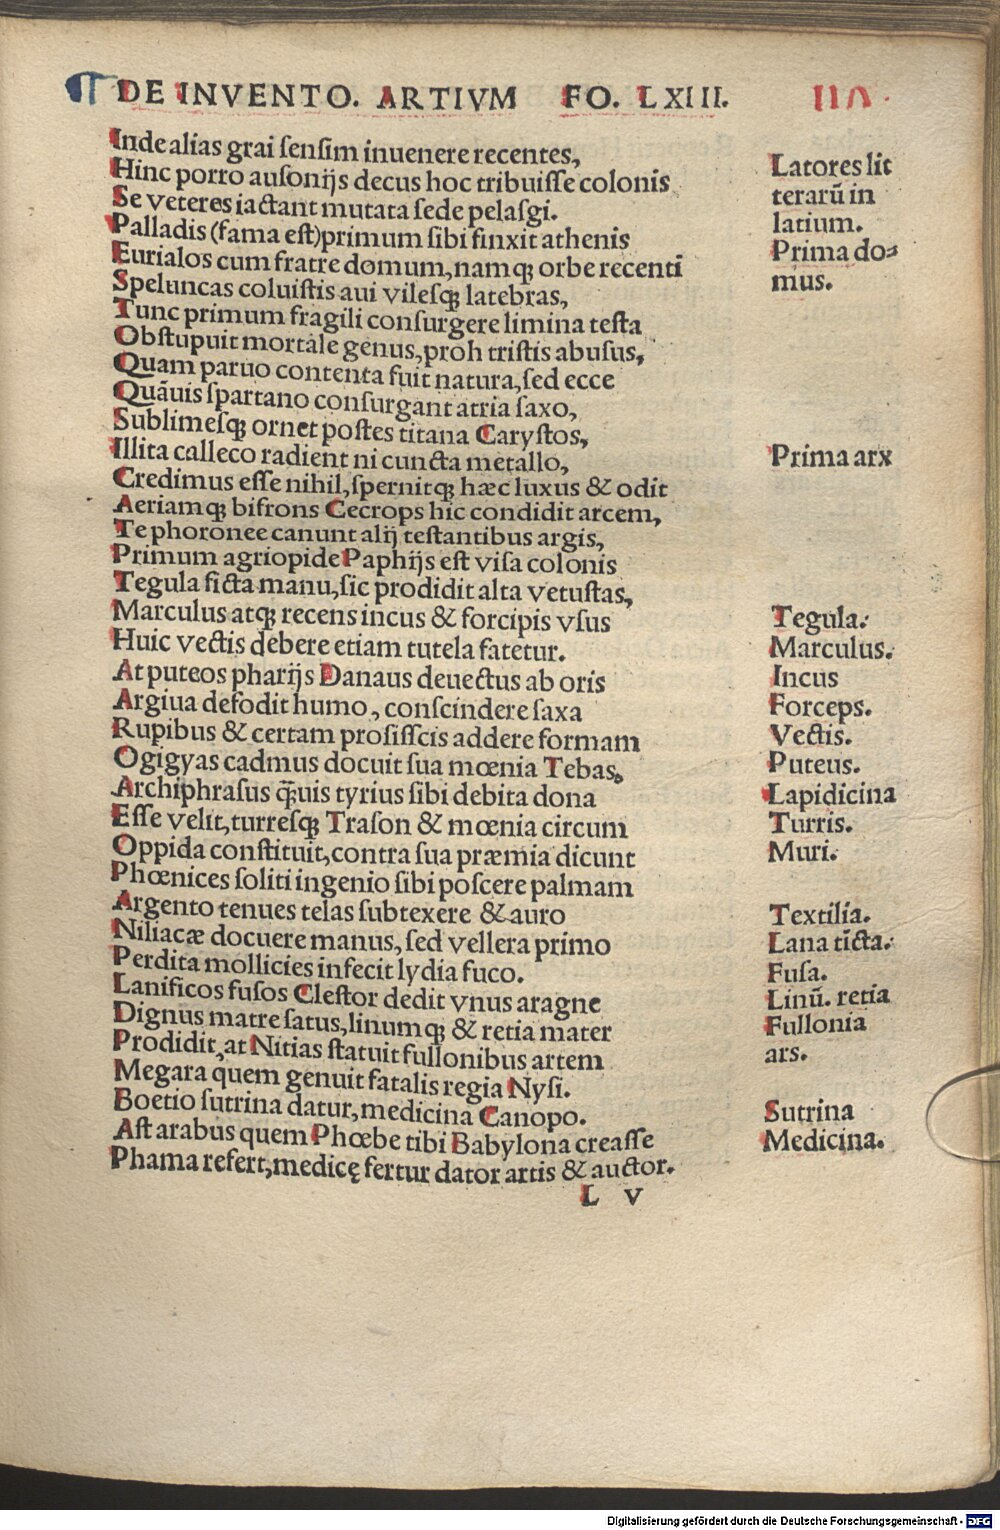 DE INVENTO. ARTIVM FO. LXIII.
Inde alias grai ſenſim inuenere recentes,
Hinc porro auſonijs decus hoc tribuiſſe colonis
Se veteres iactant mutata ſede pelaſgi.
Palladis (fama eſt)primum ſibi finxit athenis
Eurialos cum fratre domum, namqꝫ orbe recenti
Speluncas coluiſtis aui vileſqꝫ latebras,
Tunc primum fragili conſurgere limina teſta
Obſtupuit mortale genus, proh triſtis abuſus,
Quam paruo contenta fuit natura, ſed ecce
Quāuis ſpartano conſurgant atria ſaxo,
Sublimeſqꝫ ornet poſtes titana Caryſtos,
Illita calleco radient ni cuncta metallo,
Credimus eſſe nihil, ſpernitqꝫ hæc luxus & odit
Aeriamqꝫ bifrons Cecrops hic condidit arcem,
Te phoronee canunt alij teſtantibus argis,
Primum agriopide Paphijs eſt viſa colonis
Tegula ficta manu, ſic prodidit alta vetuſtas,
Marculus atqꝫ recens incus & forcipis vſus
Huic vectis debere etiam tutela fatetur.
At puteos pharijs Danaus deuectus ab oris
Argiua defodit humo, conſcindere ſaxa
Rupibus & certam proſiſſcis addere formam
Ogigyas cadmus docuit ſua mœnia Tebas,
Archiphraſus q̄uis tyrius ſibi debita dona
Eſſe velit, turreſqꝫ Traſon & mœnia circum
Oppida conſtituit, contra ſua præmia dicunt
Phœnices ſoliti ingenio ſibi poſcere palmam
Argento tenues telas ſubtexere & auro
Niliacæ docuere manus, ſed vellera primo
Perdita mollicies infecit lydia fuco.
Lanificos fuſos Cleſtor dedit vnus aragne
Dignus matre ſatus, linumqꝫ & retia mater
Prodidit, at Nitias ſtatuit fullonibus artem
Megara quem genuit fatalis regia Nyſi.
Boetio ſutrina datur, medicina Canopo.
Aſt arabus quem Phœbe tibi Babylona creaſſe
Phama refert, medicę fertur dator artis & auctor.
L v
Latores lit
terarū in
latium.
Prima do⸗
mus.
Prima arx
Tegula.
Marculus.
Incus
Forceps.
Vectis.
Puteus.
Lapidicina
Turris.
Muri.
Textilia.
Lana tīcta.
Fuſa.
Linū. retia
Fullonia
ars.
Sutrina
Medicina.
Digitalisierung gefördert durch die Deutsche Forschungsgemeinschaft - DFG